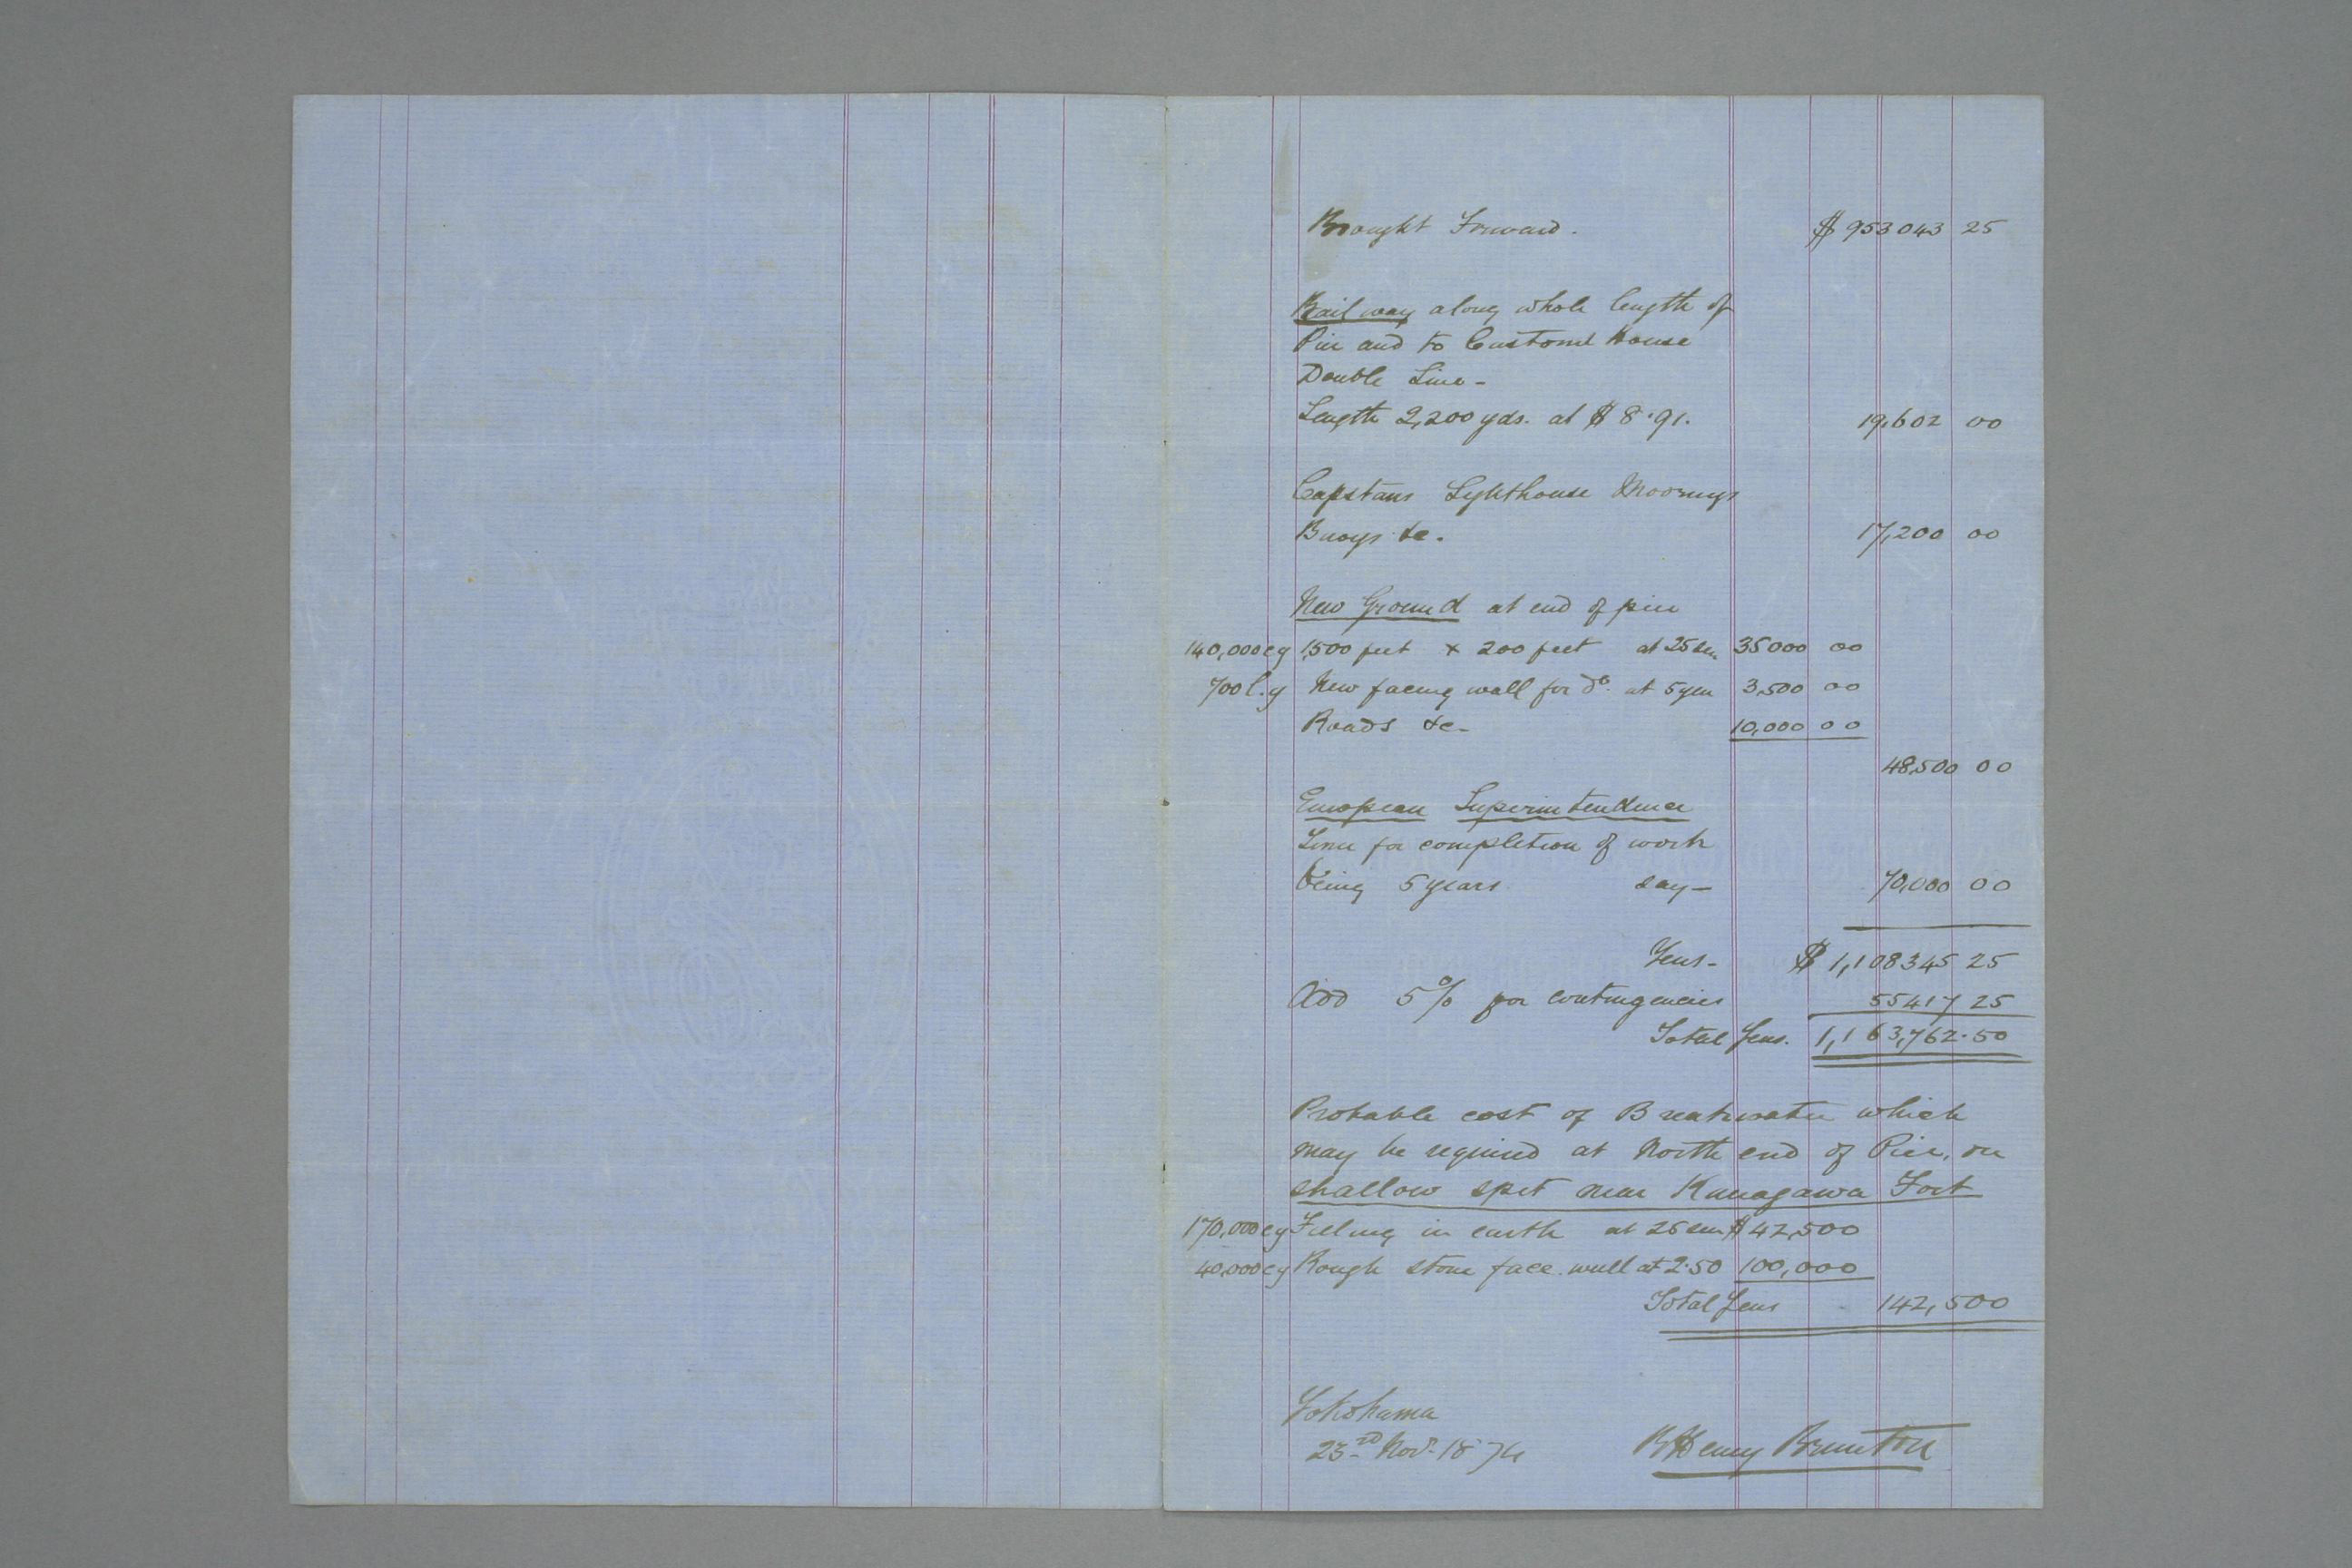 Brought Forward. $ 953043 25
Railway along whole length of
Pier and to Custom House
Double Line-
Length 2,200 yds. at $ 8.91. 19,602 00
Capstans Lighthouse Moorings
Buoys &c. 17,200 00
New Ground at end of pier
140,000 c y 1,500 feet x 200 feet at 25 sen 35000 00
700 l. y New facing wall for do. at 5 yen 3,500 00
Roads &c- 10,000 00
48,500 00
European Superintendence
Time for completion of work
being 5 years say- 70,000 00
Yens- $ 1,108345 25
Add 5% for contingencies 55417 25
Total Yens. 1,163,762.50
Probable cost of Breakwater which
may be required at North end of Pier, on
shallow spit near Kanagawa Fort
170,000 c y Filling in earth at 25 sen $ 42,500
40,000 c y Rough stone face wall at 2.50 100,000
Total Yens 142,500
Yokohama
23rd Novr. 1874 R Henry Brunton